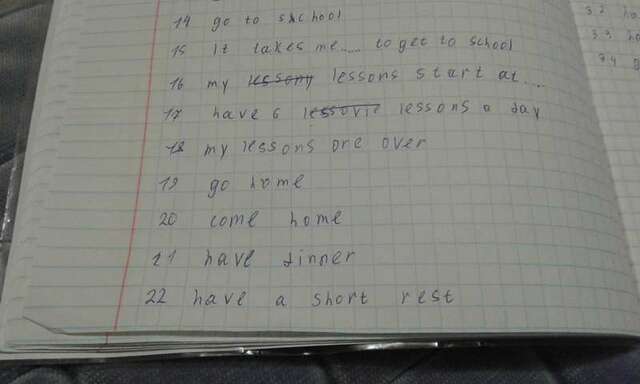 14 go to shchool
15 It takes me..... to get to school
16 my lessony lessons start at...
17 have 6 lessovie lessons a day
18 my lessons are over
19 go home
20 come home
21 have dinner
22 have a short rest
32 ho
33 ho